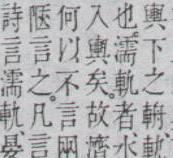 輿下之輈軌
也。濡軌者水
入輿矣。故濟
何以不言兩
言之。凡言
詩言濡軌